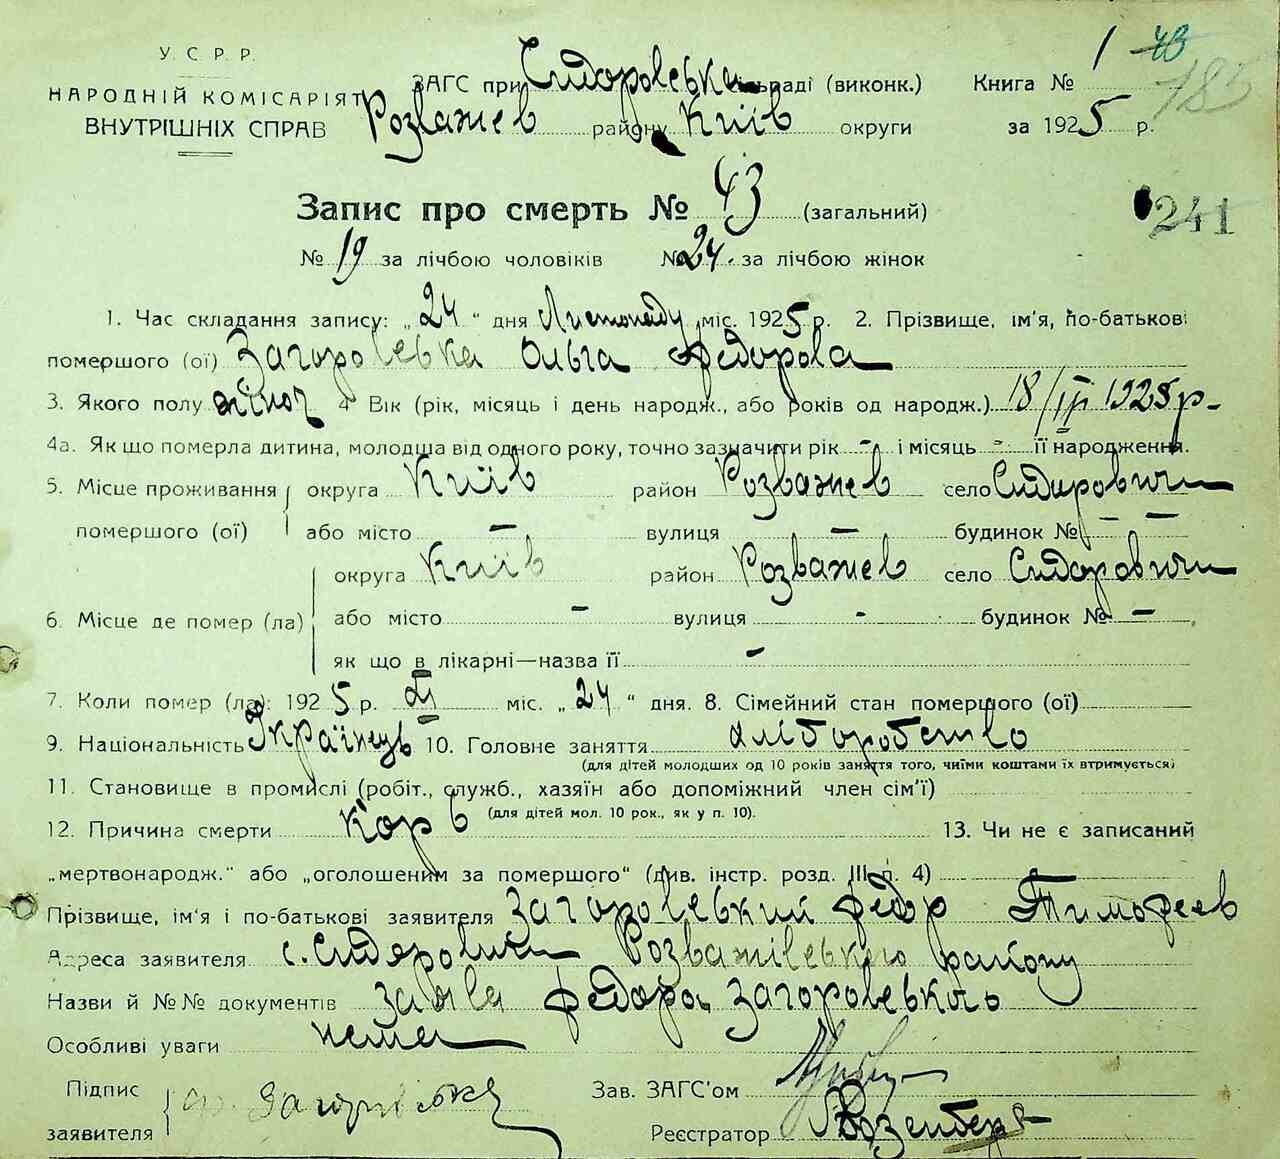 У. С. Р. Р.
НАРОДНІЙ КОМІСАРІЯТ
ВНУТРІШНІХ СПРАВ
ЗАГС при Сидоровська раді (виконк.)
Розважев району Київ округи
Книга № 1 43
за 1925 р.
785
Запис про смерть № 43 (загальний)
241
№ 19 за лічбою чоловіків № 24. за лічбою жінок
1. Час складання запису: „24“ дня Листопаду міс. 1925 р. 2. Прізвище, ім'я, по-батькові
помершого (ої) Загоровська Ольга Федорова
3. Якого полу жіноч 4 Вік (рік, місяць і день народж., або років од народж.) 18/III 1925 р-
4а. Як що померла дитина, молодша від одного року, точно зазначити рік - і місяць - її народження.
5. Місце проживання помершого (ої) округа Київ район Розважев село Сидоровичи
або місто – вулиця – будинок № – –
6. Місце де помер (ла) округа Київ район Розважев село Сидоровичи
або місто - вулиця - будинок № –
як що в лікарні—назва її -
7. Коли помер (ла): 1925 р. XI міс. „24“ дня. 8. Сімейний стан помершого (ої)
9. Національність Українець 10. Головне заняття хліборобство
(для дітей молодших од 10 років заняття того, чиїми коштами їх втримується)
11. Становище в промислі (робіт., служб., хазяїн або допоміжний член сім'ї)
(для дітей мол. 10 рок., як у п. 10).
12. Причина смерти Корь 13. Чи не є записаний
„мертвонародж.“ або „оголошеним за помершого“ (див. інстр. розд. III п. 4)
Прізвище, ім'я і по-батькові заявителя Загоровський Федор Тимофеев
Адреса заявителя с. Сидоровичи Розважівського району
Назви й №№ документів заява Федора Загоровського
Особливі уваги нема
Підпис заявителя Ф. Загоровський
Зав. ЗАГС'ом
Реєстратор Розенберг